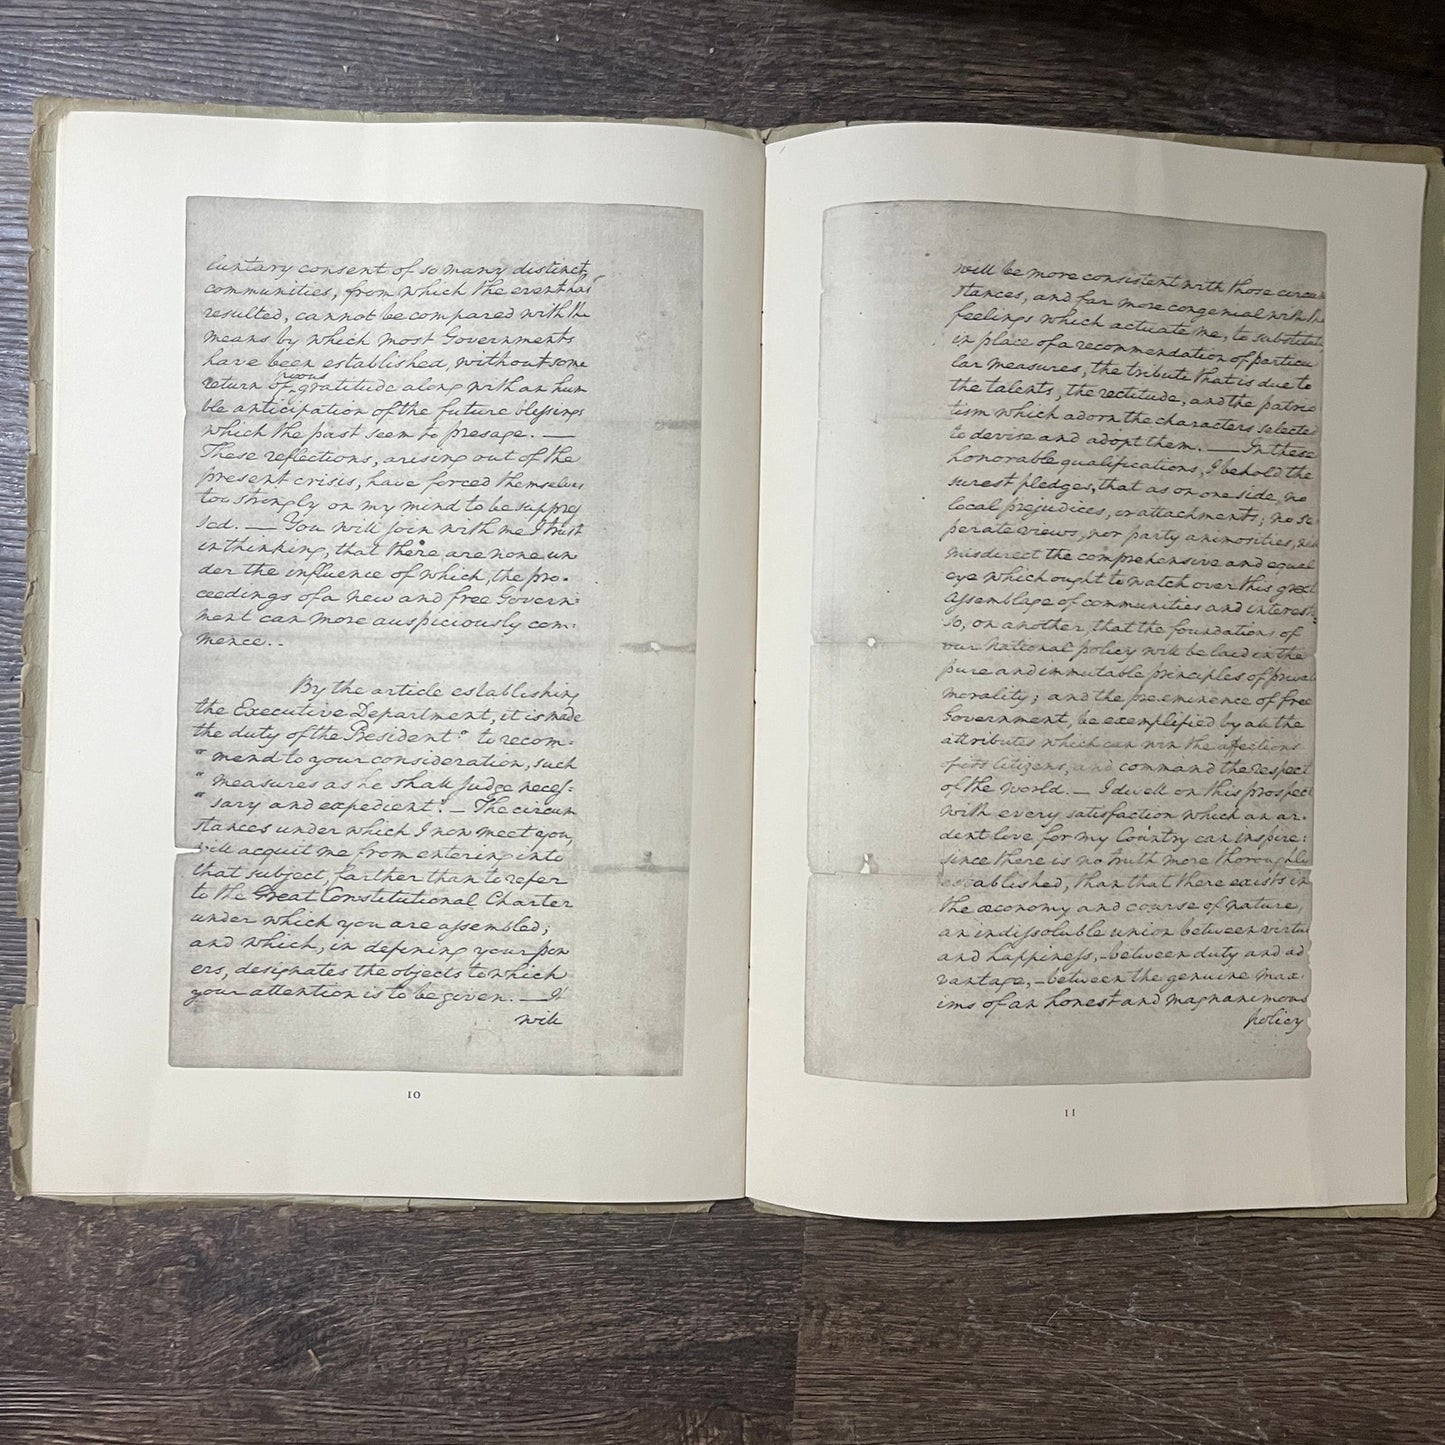 luntary consent of so many distinct
communities, from which the event has
resulted, cannot be compared with the
means by which most Governments
have been established, without some
pious
return of gratitude along with an hum
ble anticipation of the future blessings
which the past seem to presage. —
These reflections, arising out of the
present crisis, have forced themselves
too strongly on my mind to be suppres
sed. — You will join with me I trust
in thinking, that there are none un
der the influence of which, the pro-
ceedings of a new and free Govern-
ment can more auspiciously com-
mence. -
By the article establishing
the Executive Department, it is made
the duty of the President "to recom-
"mend to your consideration, such
"measures as he shall judge neces-
"sary and expedient". — The circum
stances under which I now meet you,
will acquit me from entering into
that subject, farther than to refer
to the Great Constitutional Charter
under which you are assembled;
and which, in defining your pow
ers, designates the objects to which
your attention is to be given. — It
will
10
will be more consistent with those circum
stances, and far more congenial with the
feelings which actuate me, to substitute,
in place of a recommendation of particu
lar measures, the tribute that is due to
the talents, the rectitude, and the patrio
tism which adorn the characters selected
to devise and adopt them. — In these
honorable qualifications, I behold the
surest pledges, that as on one side, no
local prejudices, or attachments; no se
perate views, nor party animosities, will
misdirect the comprehensive and equal
eye which ought to watch over this great
assemblage of communities and interests:
so, on another, that the foundations of
our National policy will be laid in the
pure and immutable principles of private
morality; and the pre-eminence of free
Government, be exemplified by all the
attributes which can win the affections
of its Citizens, and command the respect
of the world. — I dwell on this prospect
with every satisfaction which an ar-
dent love for my Country can inspire:
since there is no truth more thoroughly
established, than that there exists in
the œconomy and course of nature,
an indissoluble union between virtue
and happiness, - between duty and ad
vantage, - between the genuine max-
ims of an honest and magnanimous
policy
11